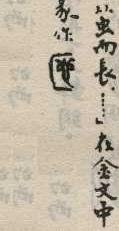 以虫而長……」在金文中
象作